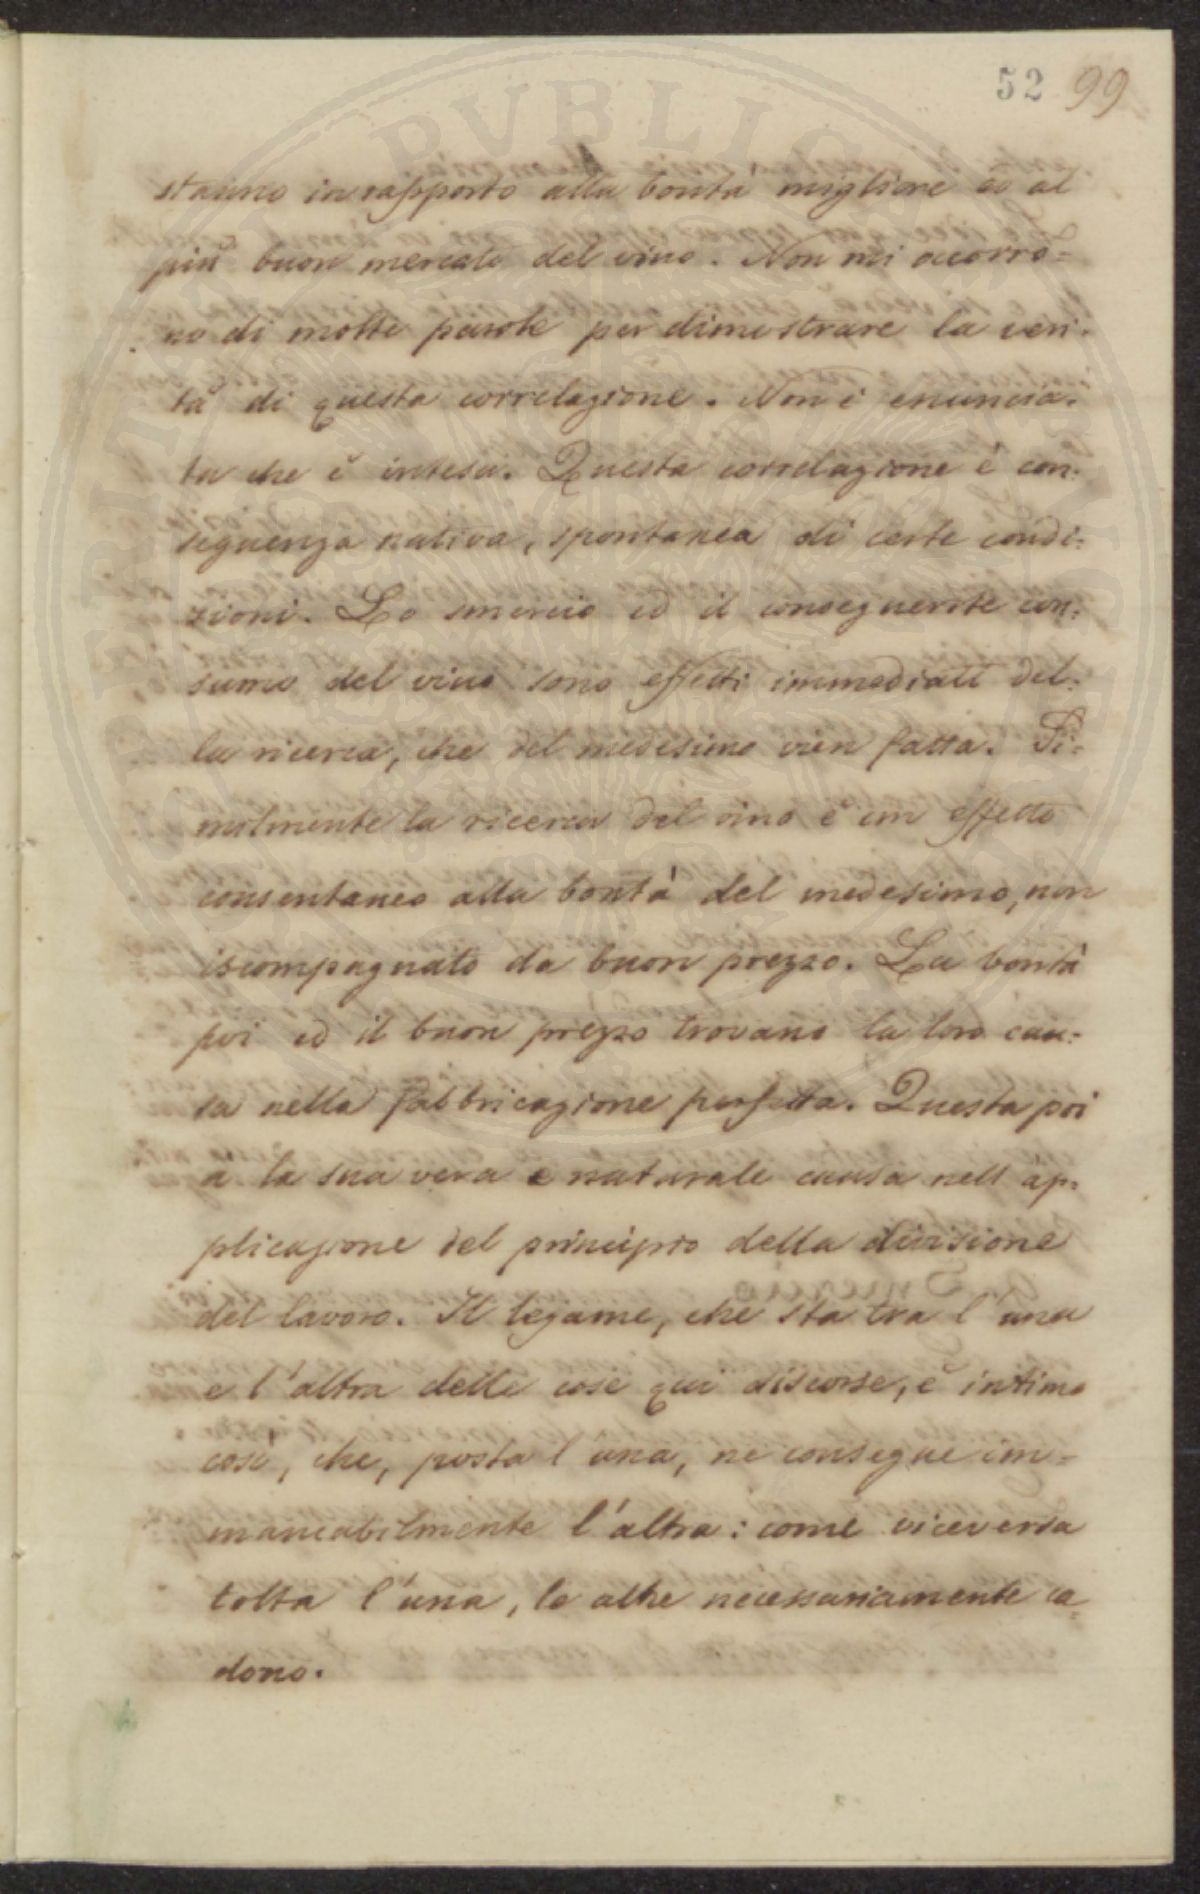 52 99
stanno in rapporto alla bontà migliore ed al
più buon mercato del vino. Non mi occorro=
no di molte parole per dimostrare la veri-
tà di questa correlazione. Non è enuncia-
ta che è intesa. Questa correlazione è con-
seguenza nativa, spontanea di certe condi-
zioni. Lo smercio ed il conseguente con-
sumo del vino sono effetti immediati del-
la ricerca, che del medesimo vien fatta. Si-
milmente la ricerca del vino è un effetto
consentaneo alla bontà del medesimo, non
iscompagnato da buon prezzo. La bontà
poi ed il buon prezzo trovano la loro cau-
sa nella fabbricazione perfetta. Questa poi
à la sua vera e naturale causa nell'ap-
plicazione del principio della divisione
del lavoro. Il legame, che sta tra l'una
e l'altra delle cose qui discorse, è intimo
così, che, posta l'una, ne consegue im=
mancabilmente l'altra: come viceversa
tolta l'una, le altre necessariamente ca=
dono.